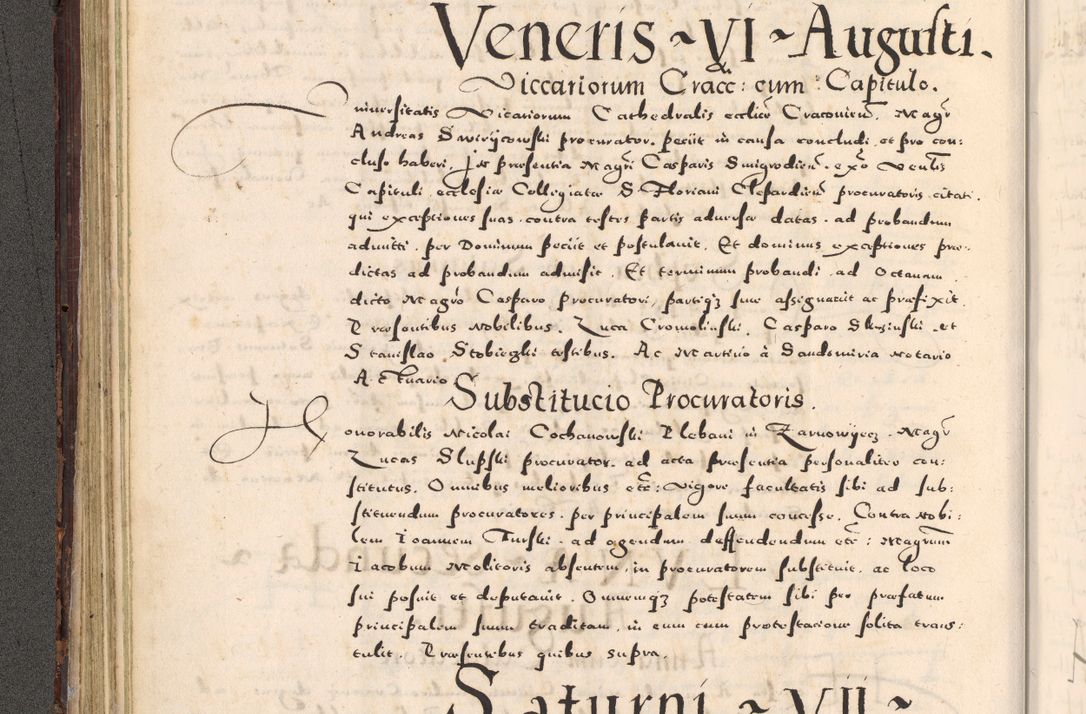 Veneris ~ VI ~ Augusti.
Viccariorum Cracc: cum Capitulo.
Universitatis Vicariorum Cathedralis ecclie͂ Cracovien͂. Magr͂
Andreas Swirÿcowski procurator. peciit in causa concludi et pro con:
cluso haberi. In praesentia Magri͂ Casparis Smigrodien͂. ex͂o Ven͂lis
Capituli ecclesiae Collegiatae S. Floriani Clepardien͂ procuratoris citati.
qui exceptiones suas contra testes partis adversae datas. ad probandum
admitti. per Dominum peciit et postulavit. Et dominus exceptiones prae:
dictas ad probandum admisit. Et terminum probandi. ad Octavam
dicto Magro͂ Casparo procuratori, partiqʒ suae assignavit ac praefixit.
Praesentibus Nobilibus. Luca Cromolinski. Casparo et
Stanislao testibus. Ac Martino à Sandomiria Notario
Actuario
Substitucio Procuratoris.
Honorabilis Nicolai Cochanowski Plebani in Zarnowyecz. Magr͂
Lucas Slupski procurator. ad acta praesentia personaliter con:
stitutus. Omnibus melioribus etc͂: Vigore facultatis sibi ad sub:
stituendum procuratores. per principalem suum concesse. Contra Nobi:
lem Ioannem Turski. ad agendum deffendendum etc͂: Magrum͂
Iacobum Molitoris absentem, in procuratorem substituit. ac loco
sui posuit et deputavit. Omnemqʒ potestatem sibi per praefatum
principalem suum traditam, in eum cum protestacione solita trans:
tulit. Praesentibus quibus supra.
Saturni ~ VII ~